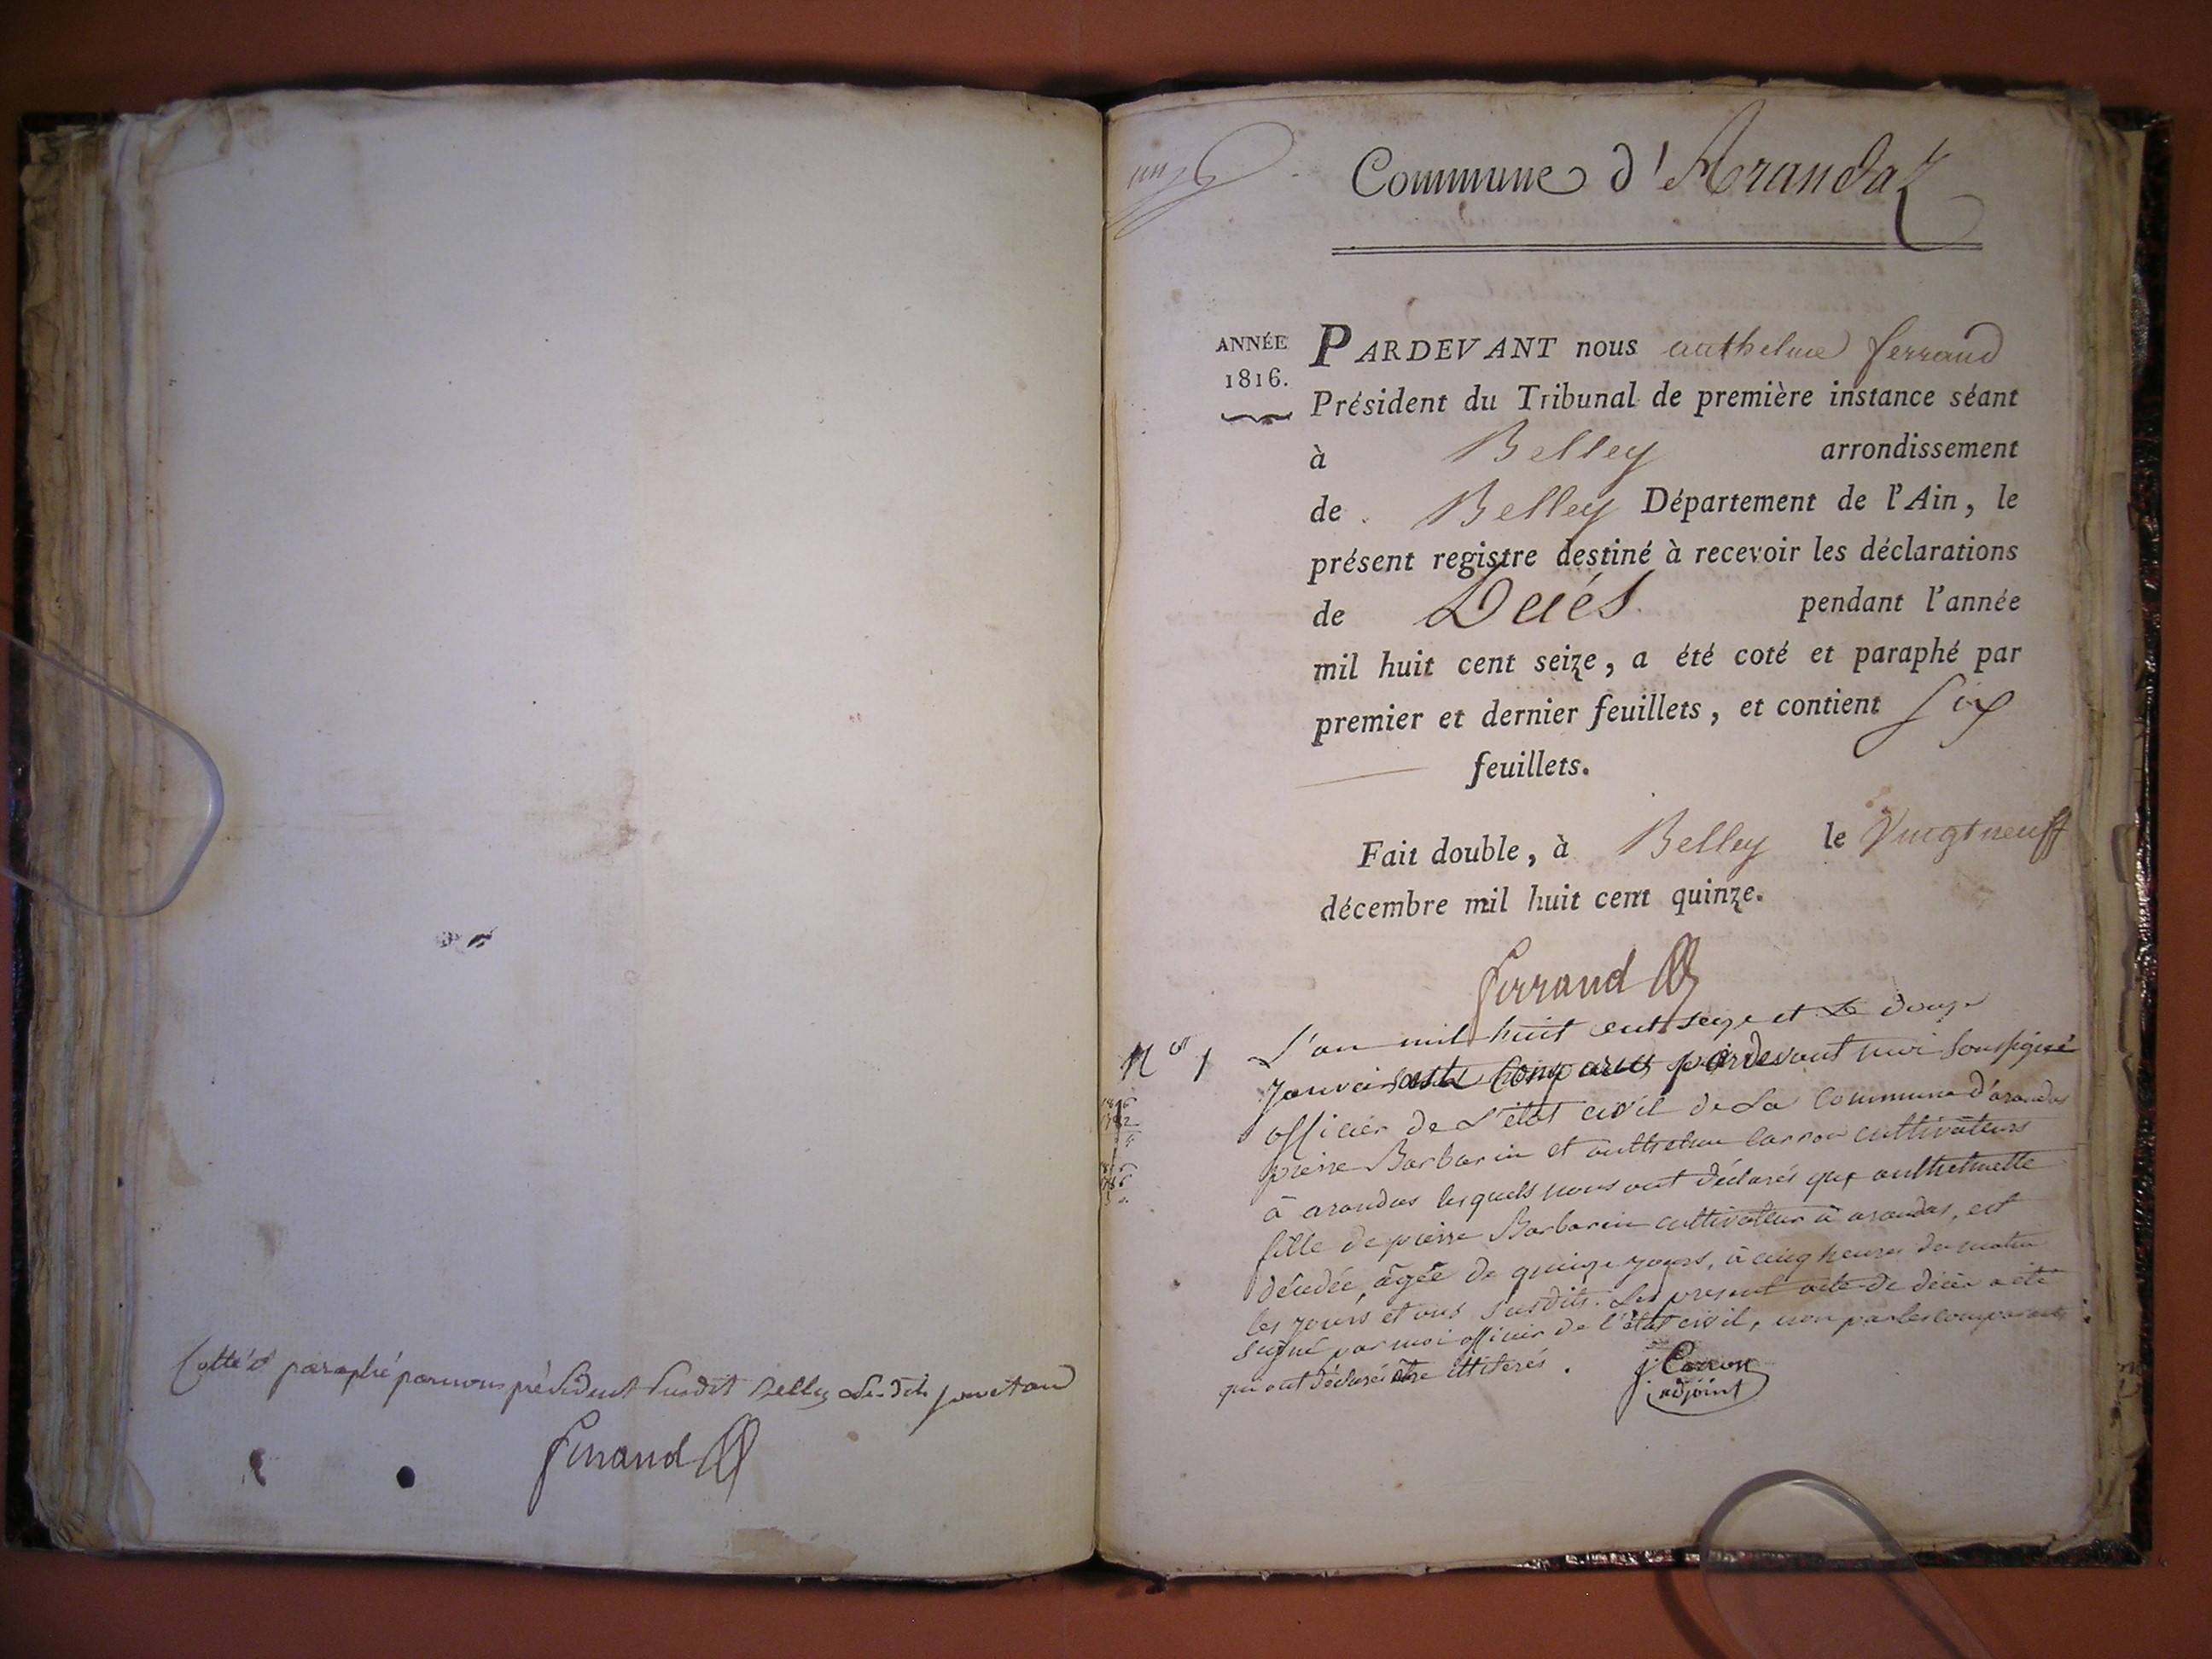 Cotté et paraphé par nous président susdit Belley les dits jour et an
ferrand
Commune d'Arandaz
ANNÉE
1816.
PARDEVANT nous anthelme ferrand
Président du Tribunal de première instance séant
à Belley arrondissement
de Belley Département de l'Ain, le
présent registre destiné à recevoir les déclarations
de Décés pendant l'année
mil huit cent seize, a été coté et paraphé par
premier et dernier feuillets, et contient six
feuillets.
Fait double, à Belley le Vingt neuff
décembre mil huit cent quinze.
ferrand
N° 1
L'an mil huit cent seize et le douze
Janvier sont comparus pardevant moi soussigné
officier de L'état civil de La Commune d'arandas
pierre Barbarin et anthelme Carron cultivateurs
à arandas lesquels nous ont déclarés que anthelmette
fille de pierre Barbarin cultivateur à arandas, est
décedée, âgée de quinze jours, à cinq heures du matin
les jours et ans susdits. Le présent acte de décès a été
signé par moi officier de l'état civil, non par les comparants
qui ont déclaré être illiterés.
j. Carron
adjoint